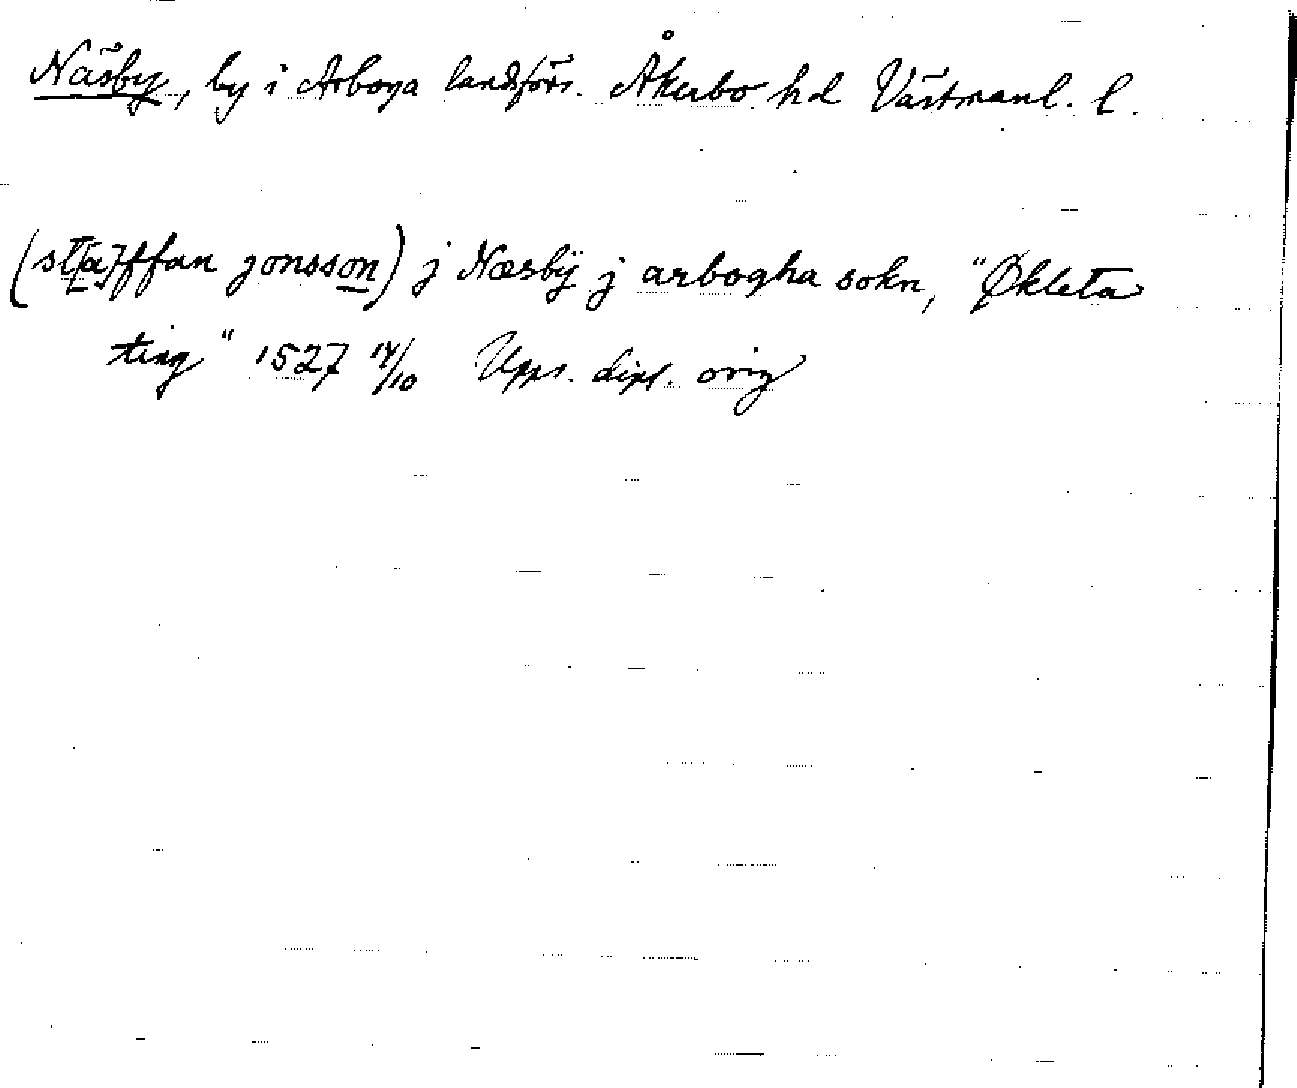 Näsby, by i Arboga landsförs. Åkerbo hd Västmanl. l.
(st[a]ffan jonsson) j Næsbÿ j arbogha sokn, "Økleta
ting" 1527 14/10 Upps. dipl. orig